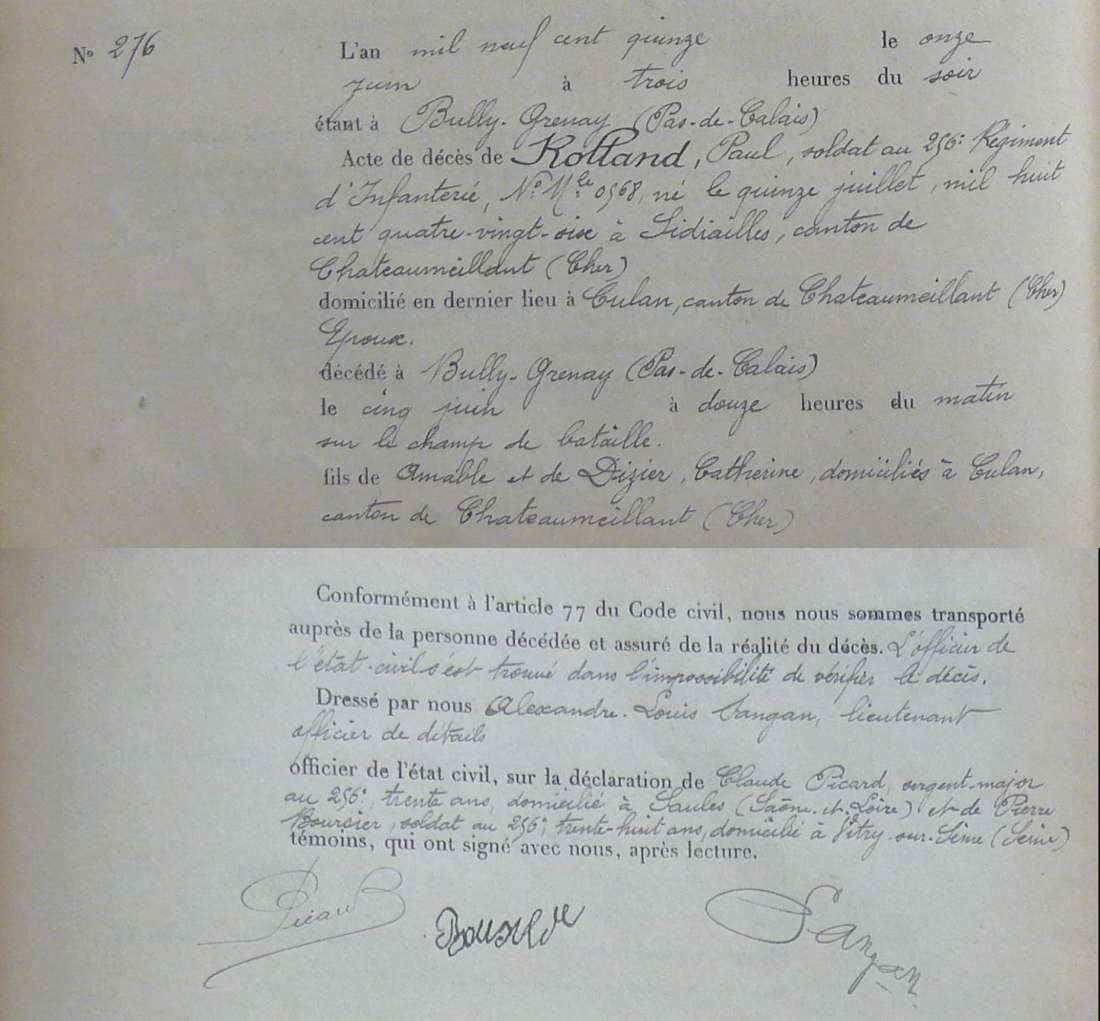 N° 276
L'an mil neuf cent quinze le onze
juin à trois heures du soir
étant à Bully-Grenay (Pas-de-Calais)
Acte de décès de Rolland, Paul, soldat au 256e Régiment
d'Infanterie, N° Mle 0568, né le quinze juillet, mil huit
cent quatre-vingt-six à Sidiailles, canton de
Chateaumeillant (Cher)
domicilié en dernier lieu à Culan, canton de Chateaumeillant (Cher)
Epoux.
décédé à Bully-Grenay (Pas-de-Calais)
le cinq juin à douze heures du matin
sur le champ de bataille.
fils de Amable et de Dizier, Catherine, domiciliés à Culan,
canton de Chateaumeillant (Cher)
Conformément à l'article 77 du Code civil, nous nous sommes transporté
auprès de la personne décédée et assuré de la réalité du décès. L'officier de
l'état-civil s'est trouvé dans l'impossibilité de vérifier le décès.
Dressé par nous Alexandre-Louis Sangan, lieutenant
officier de détails
officier de l'état civil, sur la déclaration de Claude Picard, sergent-major
au 256e, trente ans, domicilié à Saules (Saône-et-Loire) et de Pierre
Boursier, soldat au 256e, trente-huit ans, domicilié à Vitry-sur-Seine (Seine)
témoins, qui ont signé avec nous, après lecture.
Picard Boursier Sangan